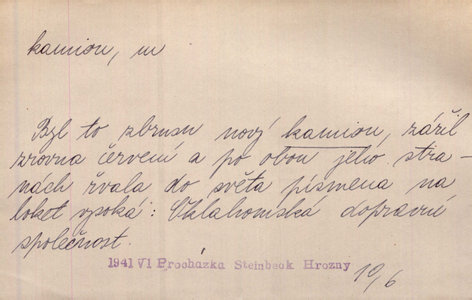 kamion, m
Byl to zbrusu nový kamion, zářil
zrovna červení a po obou jeho stra-
nách řvala do světa písmena na
loket vysoká: Oklahomská dopravní
společnost.
1941 VI Procházka Steinbeck Hrozny
19/6